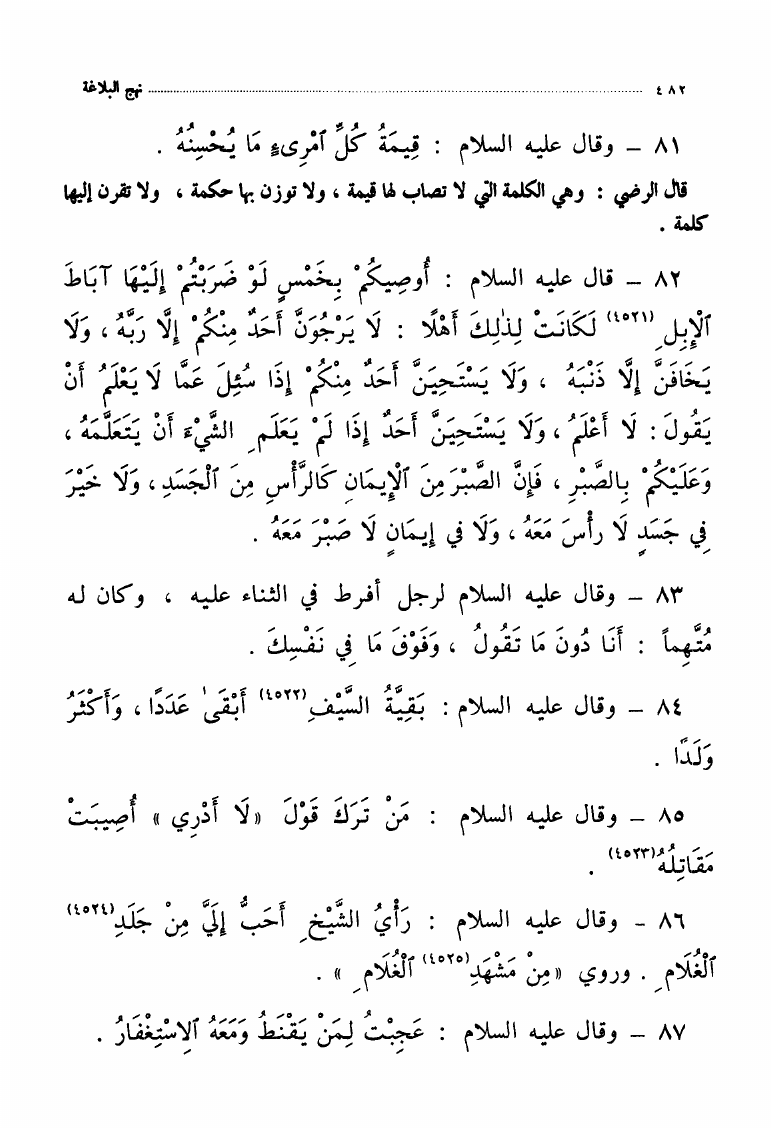 ٤٨٢ ........................................ نهج البلاغة
٨١ – وقال عليه السلام : قِيمَةُ كُلِّ ٱمْرِىءٍ مَا يُحْسِنُهُ .
قال الرضي : وهي الكلمة التي لا تصاب لها قيمة ، ولا توزن بها حكمة ، ولا تقرن إليها
كلمة .
٨٢ – قال عليه السلام : أُوصِيكُمْ بِخَمْسٍ لَوْ ضَرَبْتُمْ إِلَيْهَا آبَاطَ
ٱلْإِبِلِ (٤٥٢١) لَكَانَتْ لِذٰلِكَ أَهْلًا : لَا يَرْجُوَنَّ أَحَدٌ مِنْكُمْ إِلَّا رَبَّهُ ، وَلَا
يَخَافَنَّ إِلَّا ذَنْبَهُ ، وَلَا يَسْتَحِيَنَّ أَحَدٌ مِنْكُمْ إِذَا سُئِلَ عَمَّا لَا يَعْلَمُ أَنْ
يَقُولَ : لَا أَعْلَمُ ، وَلَا يَسْتَحِيَنَّ أَحَدٌ إِذَا لَمْ يَعْلَمِ الشَّيْءَ أَنْ يَتَعَلَّمَهُ ،
وَعَلَيْكُمْ بِالصَّبْرِ ، فَإِنَّ الصَّبْرَ مِنَ ٱلْإِيمَانِ كَالرَّأْسِ مِنَ ٱلْجَسَدِ ، وَلَا خَيْرَ
فِي جَسَدٍ لَا رَأْسَ مَعَهُ ، وَلَا فِي إِيمَانٍ لَا صَبْرَ مَعَهُ .
٨٣ – وقال عليه السلام لرجل أفرط في الثناء عليه ، وكان له
مُتَّهِماً : أَنَا دُونَ مَا تَقُولُ ، وَفَوْقَ مَا فِي نَفْسِكَ .
٨٤ – وقال عليه السلام : بَقِيَّةُ السَّيْفِ (٤٥٢٢) أَبْقَىٰ عَدَدًا ، وَأَكْثَرُ
وَلَدًا .
٨٥ – وقال عليه السلام : مَنْ تَرَكَ قَوْلَ «لَا أَدْرِي » أُصِيبَتْ
مَقَاتِلُهُ (٤٥٢٣) .
٨٦ – وقال عليه السلام : رَأْيُ الشَّيْخِ أَحَبُّ إِلَيَّ مِنْ جَلَدِ (٤٥٢٤)
ٱلْغُلَامِ . وروي «مِنْ مَشْهَدِ (٤٥٢٥) ٱلْغُلَامِ » .
٨٧ – وقال عليه السلام : عَجِبْتُ لِمَنْ يَقْنَطُ وَمَعَهُ ٱلِاسْتِغْفَارُ .